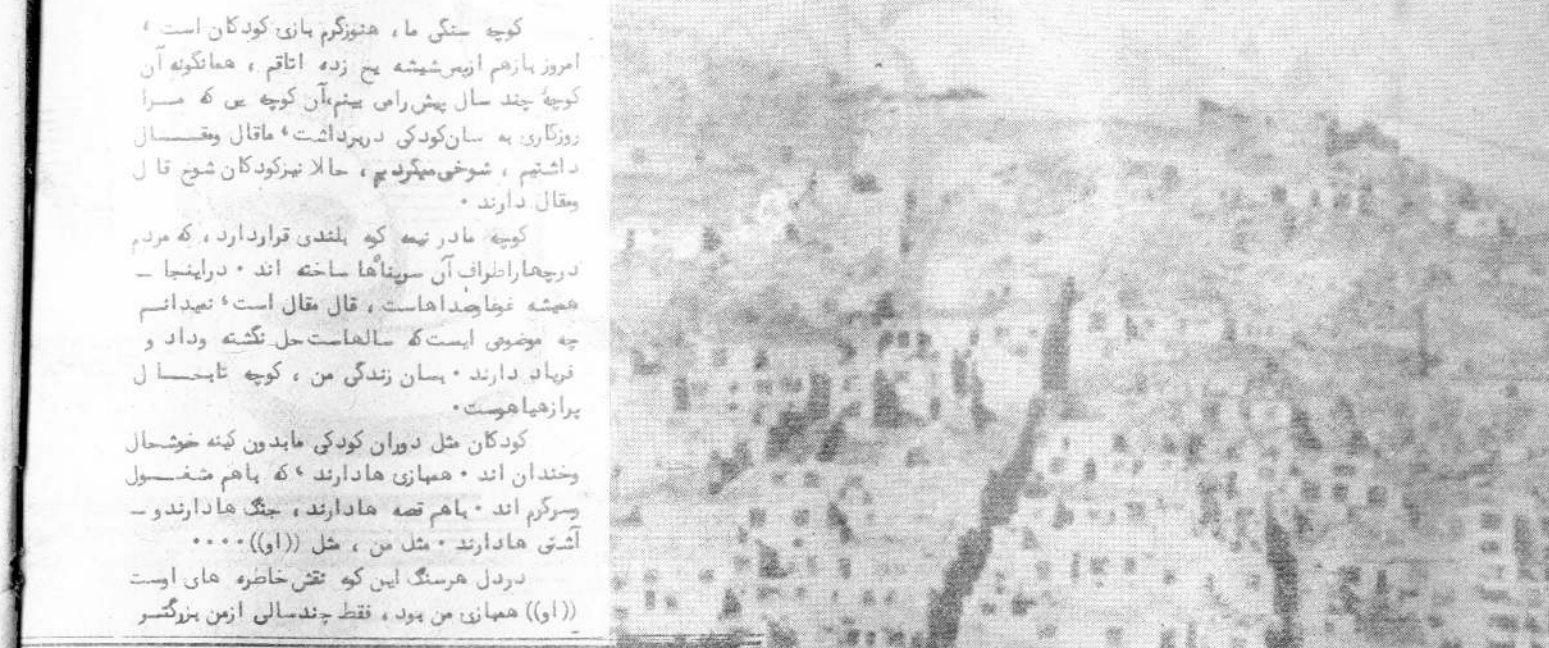 کوچه سنگی ما، هنوزگرم بازی کودکان است،
امروز بازهم ازپس شیشه یخ زده اتاقم، همانگونه آن
کوچهٔ چند سال پیش رامی بینم،آن کوچه یی که مــرا
روزگاری به سان کودکی دربرداشت، ماقال ومقـــــال
داشتیم، شوخی میکردیم، حالا نیزکودکان شوخ قا ل
ومقال دارند.
کوچه مادر نیمه کوه بلندی قراردارد، که مردم
درچهاراطراف آن سرپناها ساخته اند. دراینجا ـ
همیشه غوغاوصداهاست، قال مقال است، نمیدانــم
چه موضوعی ایست که سالهاست حل نگشته وداد و
فریاد دارند. بسان زندگی من، کوچه تابحـــا ل
پرازهیاهوست.
کودکان مثل دوران کودکی مابدون کینه خوشحال
وخندان اند. همبازی هادارند، که باهم مشغــــول
وسرگرم اند. باهم قصه هادارند، جنگ هادارندو ـ
آشتی هادارند. مثل من، مثل ((او))....
دردل هرسنگ این کوه نقش خاطره های اوست
((او)) همبازی من بود، فقط چندسالی ازمن بزرگتــر